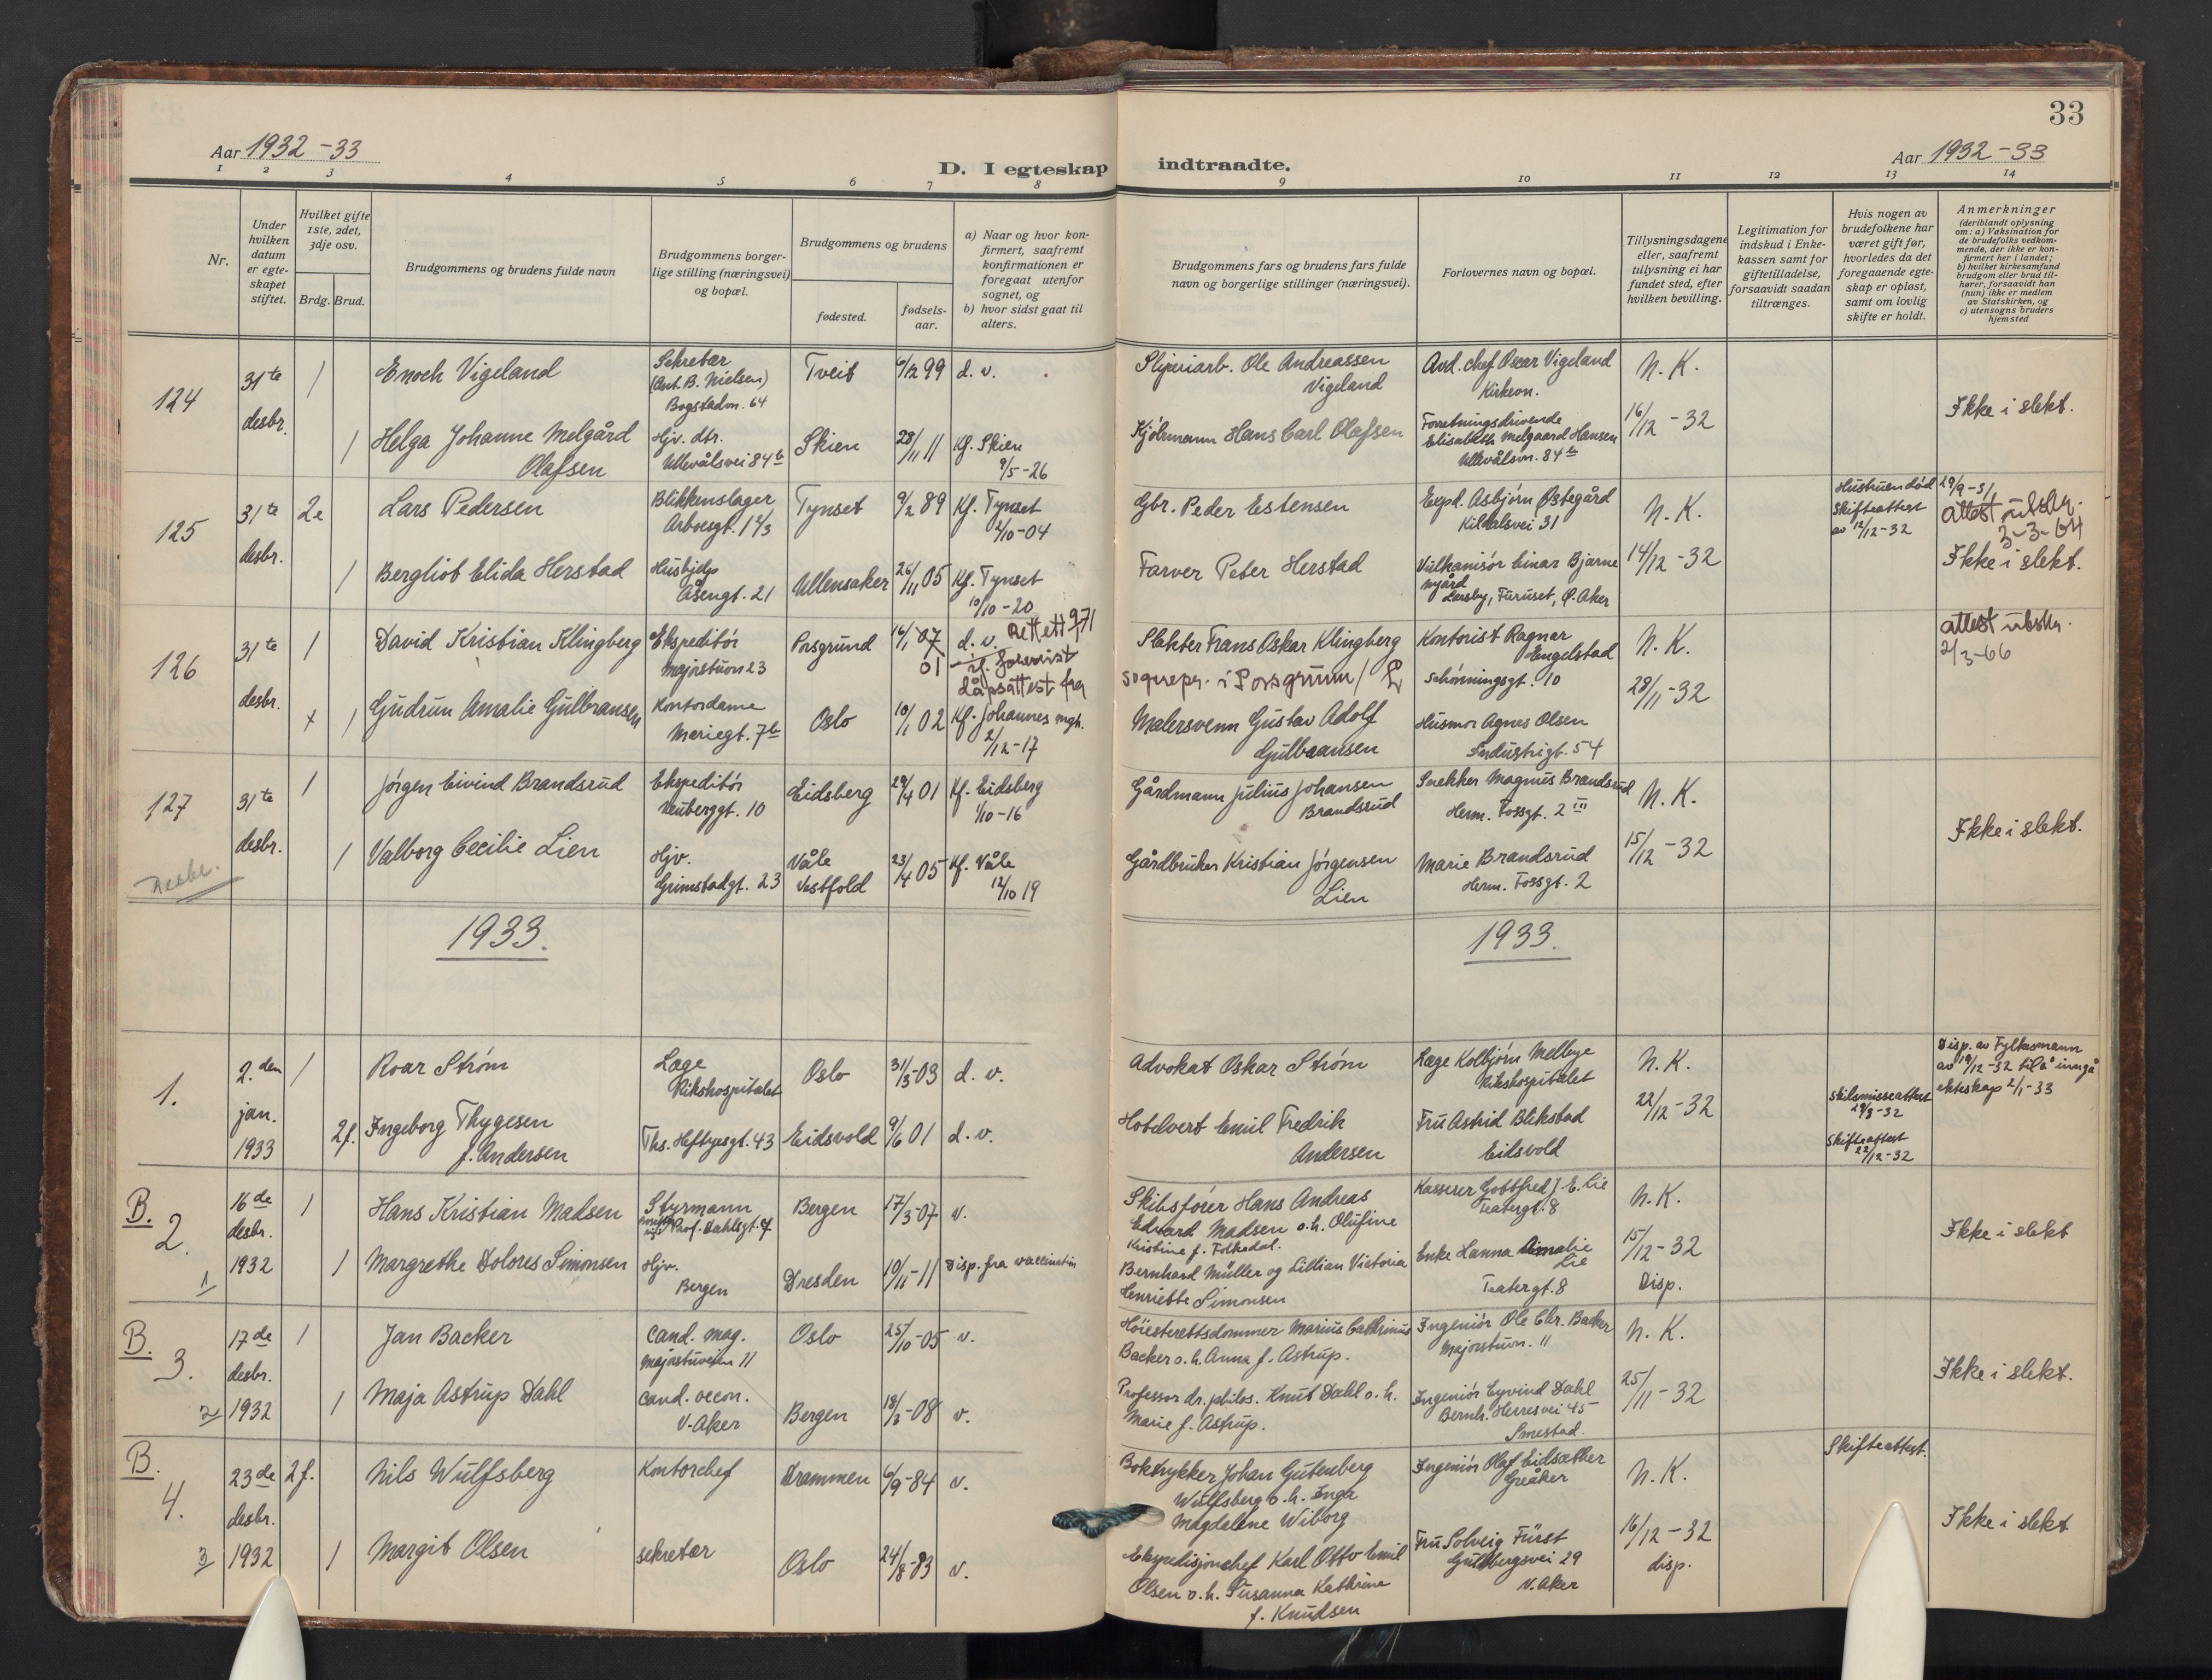 33
Aar 1932-33
D. I egteskap indtraadte.
Aar 1932-33
1 2 3 4 5 6 7 8 9 10 11 12 13 14
Nr.
Under hvilken datum er egteskapet stiftet.
Hvilket gifte 1ste, 2det, 3dje osv.
Brdg. Brud.
Brudgommens og brudens fulde navn
Brudgommens borgerlige stilling (næringsvei) og bopæl.
Brudgommens og brudens
fødested.
fødselsaar.
a) Naar og hvor konfirmert, saafremt konfirmationen er foregaat utenfor sognet, og
b) hvor sidst gaat til alters.
Brudgommens fars og brudens fars fulde navn og borgerlige stillinger (næringsvei).
Forlovernes navn og bopæl.
Tillysningsdagene eller, saafremt tillysning ei har fundet sted, efter hvilken bevilling.
Legitimation for indskud i Enkekassen samt for giftetilladelse, forsaavidt saadan tiltrænges.
Hvis nogen av brudefolkene har været gift før, hvorledes da det foregaaende egteskap er opløst, samt om lovlig skifte er holdt.
Anmerkninger
(deriblandt oplysning om: a) Vaksination for de brudefolks vedkommende, der ikke er konfirmert her i landet;
b) hvilket kirkesamfund brudgom eller brud tilhører, forsaavidt han (hun) ikke er medlem av Statskirken, og
c) utensogns bruders hjemsted
124
31te desbr.
1
Enoch Vigeland
Sekretær
(Ant. B. Nielsen)
Bogstadvn. 64
Tveit
6/12 99
d. v.
Sliperiarb. Ole Andreassen
Vigeland
Avd. chef Oscar Vigeland
Kirkevn.
N. K.
Ikke i slekt.
1
Helga Johanne Melgård
Olafsen
Hjv. dtr.
Ullevålsvei 84b
Skien
28/11 11
Kf. Skien
9/5-26
Kjørmann Hans Carl Olafsen
Forretningsdrivende
Elisabeth Melgaard Hansen
Ullevålsvn. 84b
16/12-32
125
31te desbr.
2e
Lars Pedersen
Blikkenslager
Arboesgt. 1 4/3
Tynset
9/2 89
Kf. Tynset
2/10-04
Gbr. Peder Estensen
Expd. Asbjørn Østegård
Kildalsvei 31
N. K.
Hustruen død 29/9-31
Skifteattest
av 12/12-32
attest utstedt
3-3-64
1
Bergliot Elida Herstad
Hushjelp
Åsengt. 21
Ullensaker
26/11 05
Kf. Tynset
10/10-20
Farver Peter Herstad
Vulkanisør Einar Bjarne
Nygård
Lørsby, Furuset, Ø. Aker
14/12-32
Ikke i slekt.
126
31te desbr.
1
David Kristian Klingberg
Ekspeditør
Majorstuvn 23
Porsgrund
16/1 07
01
d. v. Rettett 9/71
if. forevist
dåpsattest fra
Slakter Frans Oskar Klingberg
sognepr. i Porsgrunn/
Kontorist Ragnar
Engelstad
Schønningsgt. 10
N. K.
attest utstedt
2/3-66
x 1
Gudrun Amalie Gulbransen
Kontordame
Mariegt. 7b
Oslo
10/1 02
Kf. Johannes mgh.
2/12-17
Malersvenn Gustav Adolf
Gulbransen
Husmor Agnes Olsen
Industrigt. 54
28/11-32
127
31te desbr.
1
Jørgen Eivind Brandsrud
Ekspeditør
Neuberggt. 10
Eidsberg
29/4 01
Kf. Eidsberg
1/10-16
Gårdmann Julius Johansen
Brandsrud
Snekker Magnus Brandsrud
Herm. Fossgt. 2 III
N. K.
Ikke i slekt.
1
Valborg Cecilie Lien
Hjv.
Grimstadgt. 23
Våle
Vestfold
23/4 05
Kf. Våle
12/10 19
Gårdbruker Kristian Jørgensen
Lien
Marie Brandsrud
Herm. Fossgt. 2
15/12-32
Desbr.
1933. 1933.
1.
2.den jan. 1933
1
Roar Strøm
Læge
Rikshospitalet
Oslo
31/3-03
d. v.
Advokat Oskar Strøm
Læge Kolbjørn Melbye
Rikshospitalet
N. K.
Disp. av Fylkesmann
av 19/12-32 til å inngå
ekteskap 2/1-33
2f.
Ingeborg Thygesen
f. Andersen
Ths. Heftyesgt. 43
Eidsvold
9/6 01
d. v.
Hotelvert Emil Fredrik
Andersen
Fru Astrid Blikstad
Eidsvold
22/12-32
Skilsmisseattest
29/3-32
Skifteattest
22/12-32
B.
2.
1
16de desbr. 1932
1
Hans Kristian Madsen
Styrmann
Prof. Dahlsgt. 7
Bergen
17/3-07
v.
Skibsfører Hans Andreas
Edvard Madsen o.h. Olufine
Kristine f. Folkedal.
Kasserer Gottfred J. E. Lie
Teatergt. 8
N. K.
Ikke i slekt
1
Margrethe Dolores Simonsen
Hjv.
Bergen
Dresden
10/11-11
Disp. fra vaccination
Bernhard Müller og Lillian Victoria
Henriette Simonsen
Enke Hanna Amalie
Lie
Teatergt. 8
15/12-32
Disp.
B.
3.
2
17de desbr. 1932
1
Jan Backer
Cand. mag.
Majorstuveien 11
Oslo
25/10-05
v.
Høiesterettsdommer Marius Cathrinus
Backer o.h. Anna f. Astrup.
Ingeniør Ole Chr. Backer
Majorstuvn. 11
N. K.
Ikke i slekt.
1
Maja Astrup Dahl
Cand. oecon.
V. Aker
Bergen
18/3-08
v.
Professor dr. philos. Knut Dahl o.h.
Marie f. Astrup.
Ingeniør Eyvind Dahl
Bernh. Herresvei 45
Smestad.
25/11-32
B.
4.
3
23de desbr. 1932
2f.
Nils Wulfsberg
Kontorchef
Drammen
6/9-84
v.
Boktrykker Johan Gutenberg
Wulfsberg o.h. Inga
Magdalene Wiborg
Ingeniør Olaf Eidsæther
Greåker
N. K.
Skifteattest.
Ikke i slekt
1
Margit Olsen
sekretær
Oslo
24/8-83
v.
Ekspedisjonschef Karl Otto Emil
Olsen o.h. Susanna Kathrine
f. Knudsen
Fru Solveig Fürst
Gulbergsvei 29
V. Aker
16/12-32
disp.